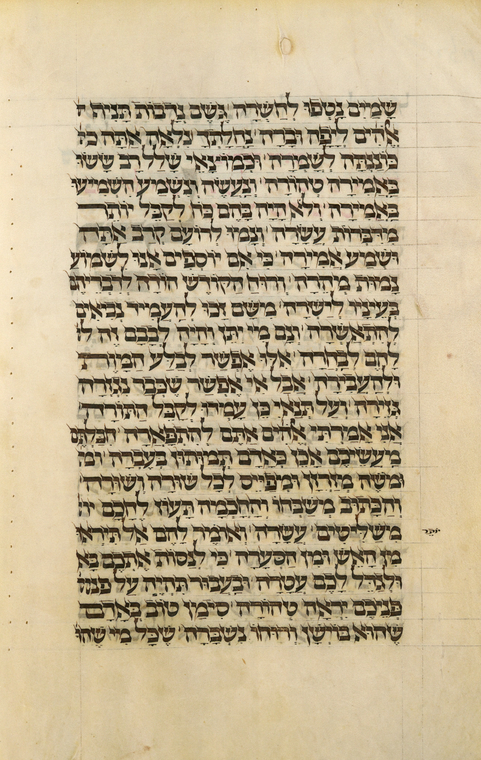 שמים נטפו לחשרה גשם נדבות תניף
אלהים ליפה וברה נחלתך ונלאה אתה
כוננתה לשמרה ובמוצאי שלל רב ששו
באמירה טהורה ונעשה ונשמיע השמיעו
באמירה ולא היה בהם כח לקבל יותר
מדברות עשרה ונמו לרועם קרב אתה
ושמע אמירה כי אם יוספים אנו לשמוע
נמות מהרה ורוח הקודש הורה לדבריהם
בעיניו לישרה משם זכו להעמיד נביאים
להתאשרה וגם מי יתן והיה לבבם זה
להם לבחרה אלו אפשר לבלע המות
ולהעבירה אבל אי אפשר שכבר נגזרה
גזירה ועל תנאי כן עמדו לקבל התורה
אני אמרתי אלהים אתם להתפארה חבלתם
מעשיכם אכן כאדם תמותון בעברה
ומשה מזרזן ומפייס לכל שורה ושורה
והכתיב משבחו והחכמה תעוז לחכם
משליטים עשרה ואומר להם אל תיראו
מן האש ומן הסערה כי לנסות אתכם בא
ולגדל לכם עטרה ובעבור תהיה על פנ
פניכם יראה טהורה סימן טוב באדם
שהוא בוישן ורוחו נשברה שכל מי שהו